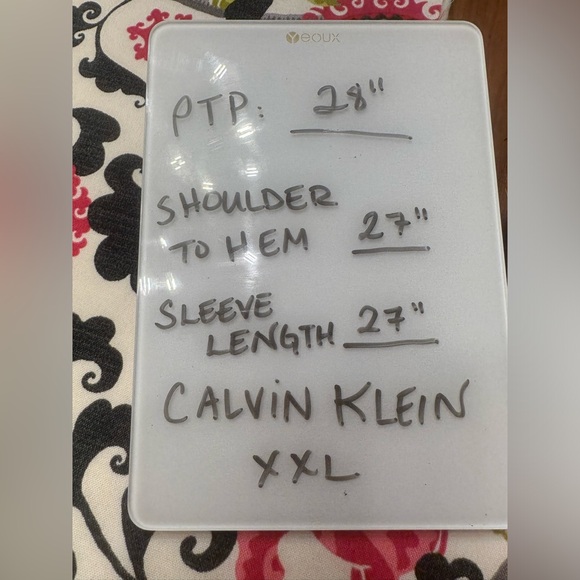 YEOUX
PTP: 28"
SHOULDER
TO HEM 27"
SLEEVE
LENGTH 27"
CALVIN KLEIN
XXL